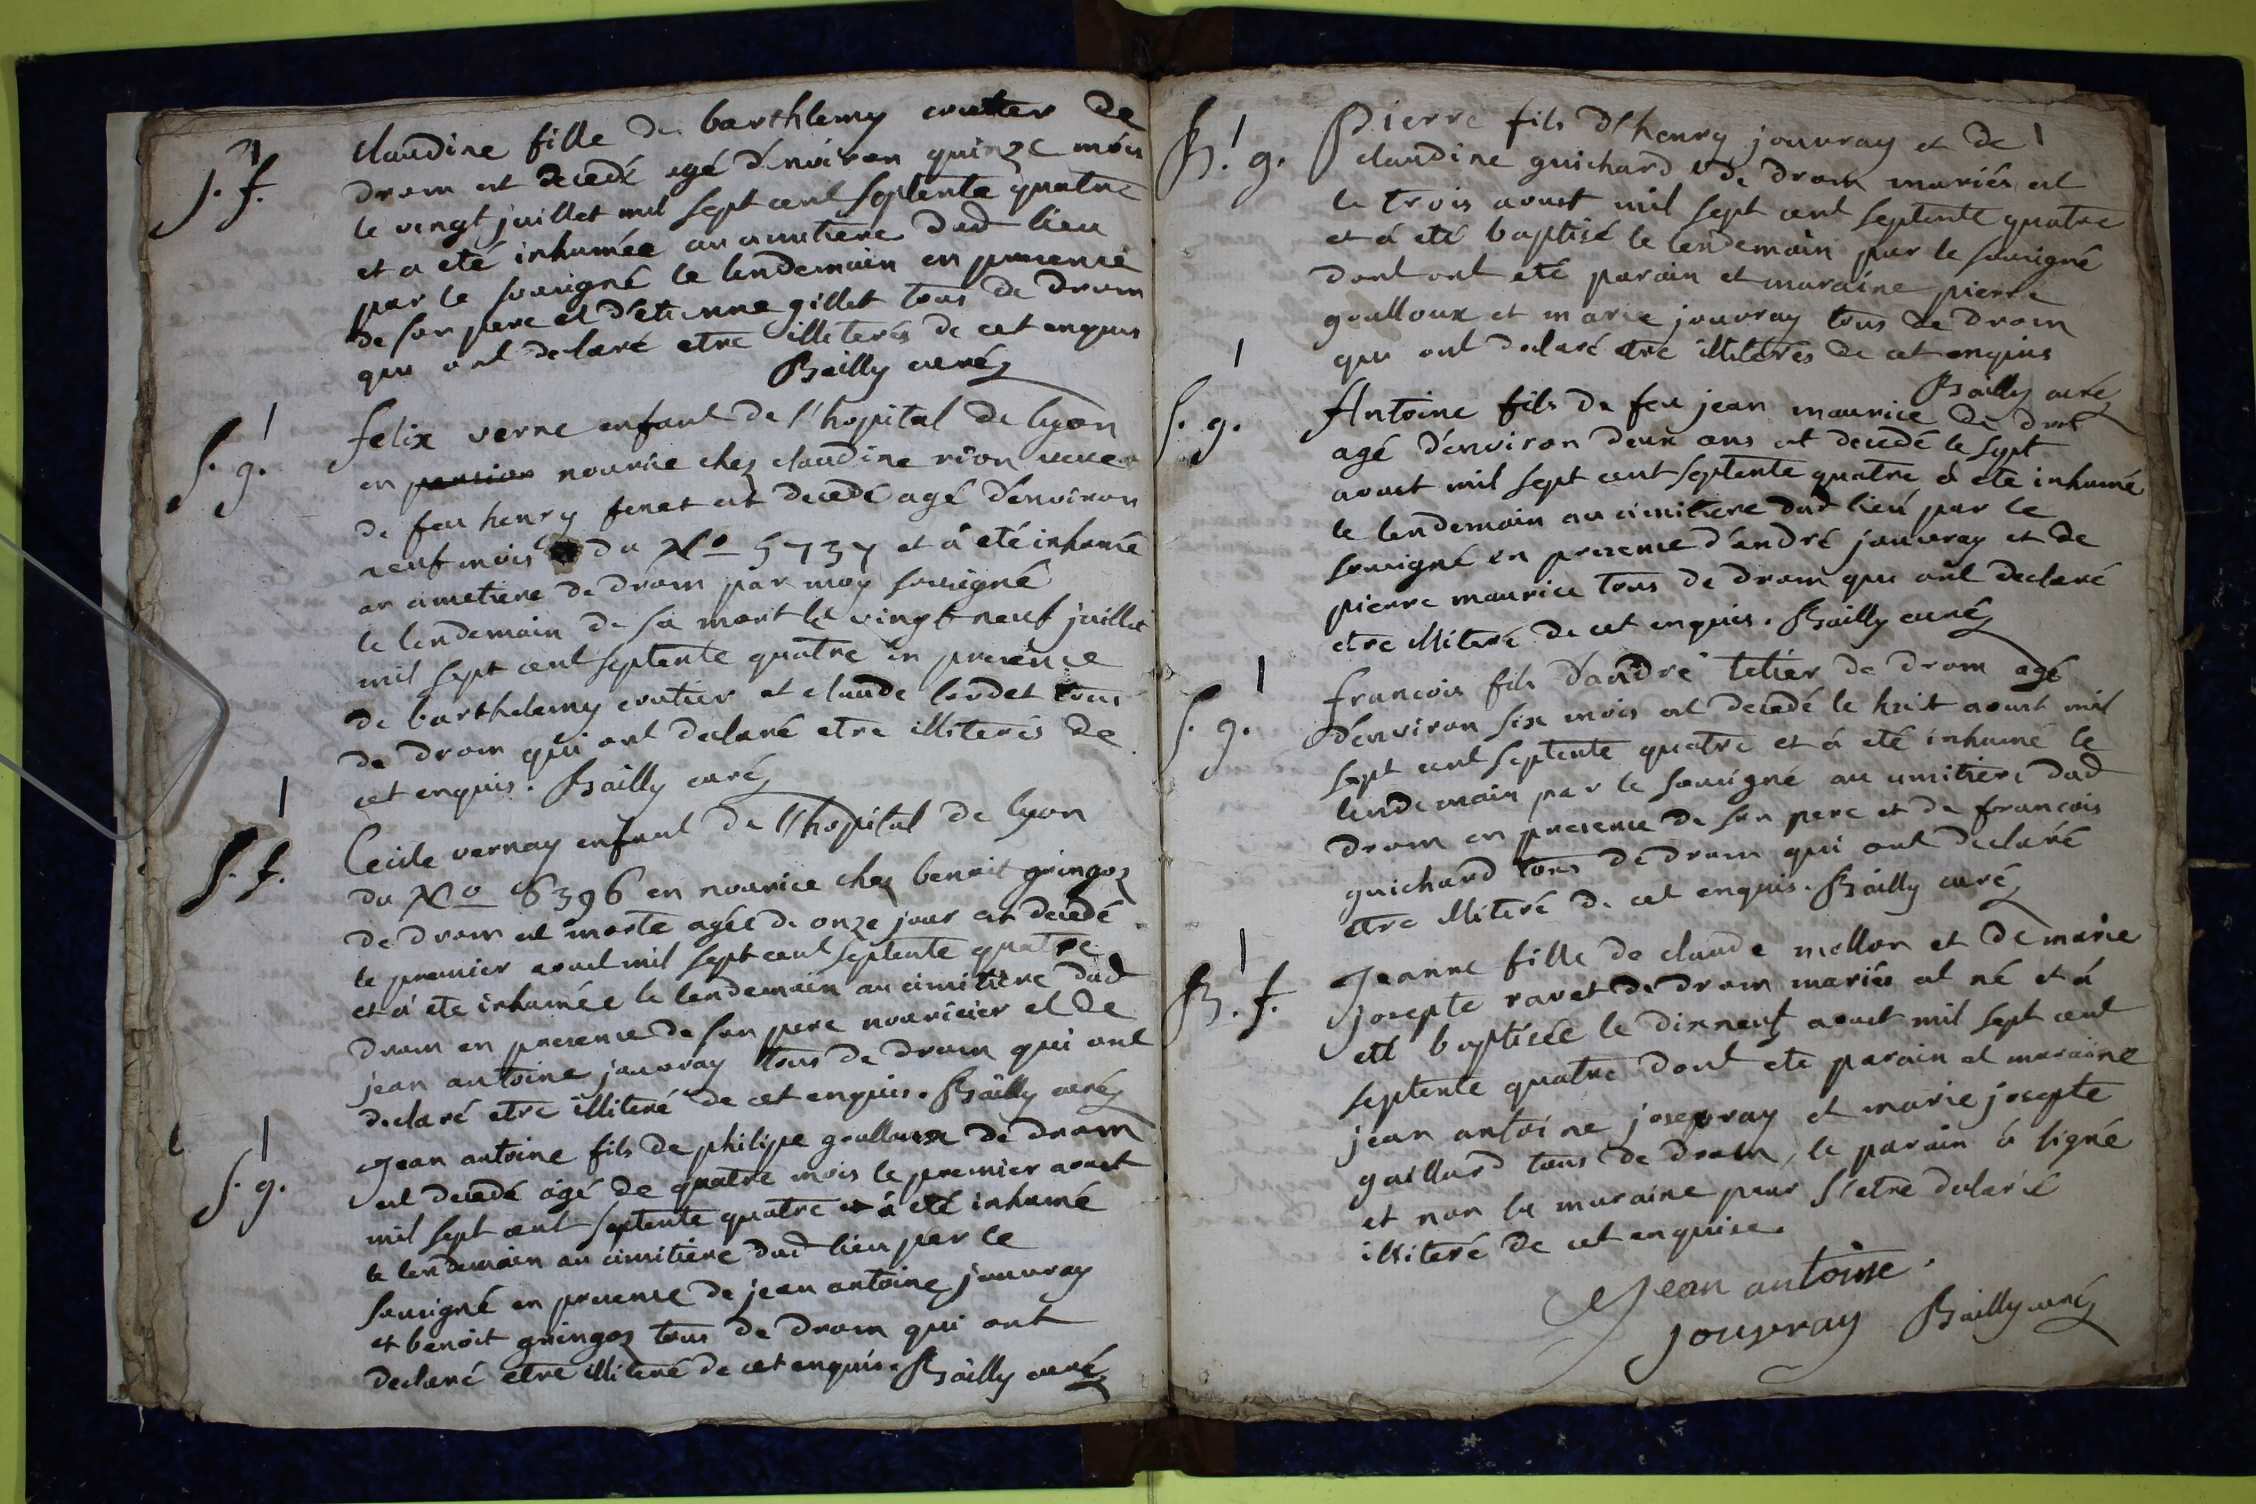 S. f.
claudine fille de barthlemy crutier de
drom est decedé agé d'environ quinze mois
le vingt juillet mil sept cent septente quatre
et a eté inhumée au cimetiere dud lieu
par le souuigné le lendemain en presence
de son pere et d'etienne gillet tous de drom
qui ont declaré etre illiterés de cet enquis
Bailly curé
S. g.
felix verne enfant de l'hopital de lyon
en pension nourice chez claudine rion veuve
de feu henry feret est decedé agé d'environ
neuf mois du No 5737 et a eté inhumé
au cimetiere de drom par moy souuigné
le lendemain de sa mort le vingt neuf juillet
mil sept cent septente quatre en presence
de barthelemy crutier et claude lordet tous
de drom qui ont declaré etre illiterés de
cet enquis. Bailly curé
S. f.
Cecile vernay enfant de l'hopital de lyon
du No 6396 en nourice chez benoit gringoz
de drom est morte agée de onze jour est decedé
le premier aoust mil sept cent septente quatre
et a ete inhumée le lendemain au cimitiere dud
drom en presence de son pere nouricier et de
jean antoine jouvray tous de drom qui ont
declaré etre illiteré de cet enquis. Bailly curé
S. g.
Jean antoine fils de philipe goulloux de drom
est decedé agé de quatre mois le premier aoust
mil sept cent septente quatre et a eté inhumé
le lendemain au cimitiere dud lieu par le
souuigné en presence de jean antoine jouvray
et benoit gringoz tous de drom qui ont
declaré etre illiteré de cet enquis. Bailly curé
B. g.
Pierre fils d'henry jouvray et de
claudine guichard de drom mariés est
le trois aoust mil sept cent septente quatre
et a eté baptisé le lendemain par le souuigné
dont ont eté parain et maraine pierre
goulloux et marie jouvray tous de drom
qui ont declaré etre illiterés de cet enquis
Bailly curé
S. g.
Antoine fils de feu jean maurice de drom
agé d'environ deux ans est decedé le sept
aoust mil sept cent septente quatre a ete inhumé
le lendemain au cimitiere dud lieu par le
souuigné en presence d'andré jouvray et de
pierre maurice tous de drom qui ont declaré
etre illiteré de cet enquis. Bailly curé
S. g.
francois fils d'andré tetier de drom agé
d'environ six mois est decedé le huit aoust mil
sept cent septente quatre et a eté inhumé le
lendemain par le souuigné au cimitiere dud
drom en presence de son pere et de francois
guichard tous de drom qui ont declaré
etre illiteré de cet enquis. Bailly curé
B. f.
Jeanne fille de claude mellon et de marie
josepte ravet de drom mariés est né et a
eté baptisée le dixneuf aoust mil sept cent
septente quatre dont ete parain et maraine
jean antoine jouvray et marie josepte
gaillard tous de drom, le parain a signé
et non la maraine pour s'etre declaré
illiteré de cet enquise.
Jean antoine
jouvray Bailly curé